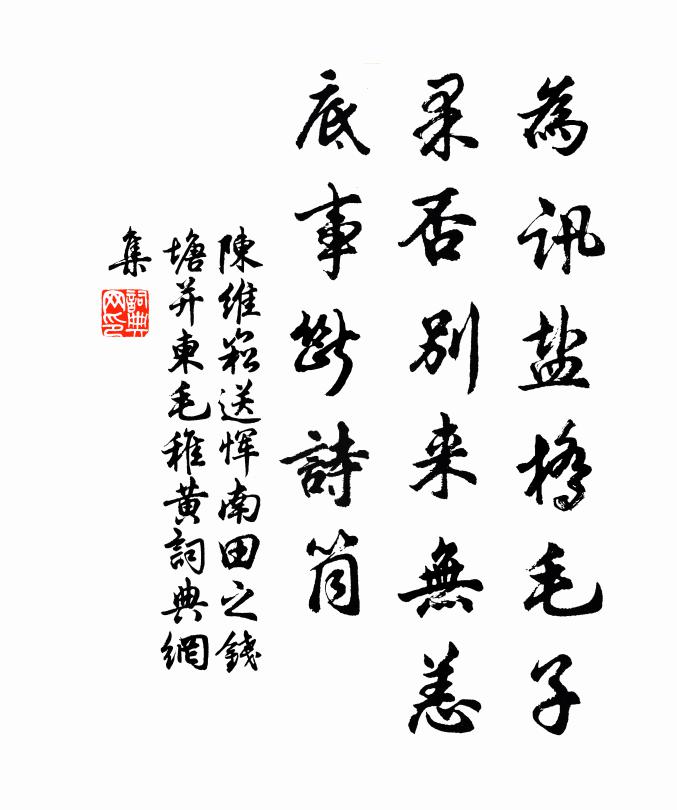 為訊盐橋毛子
果否别来無恙
底事斷詩筒
陳維崧送惲南田之錢
塘并柬毛稚黄詞典網
集
詞典网印